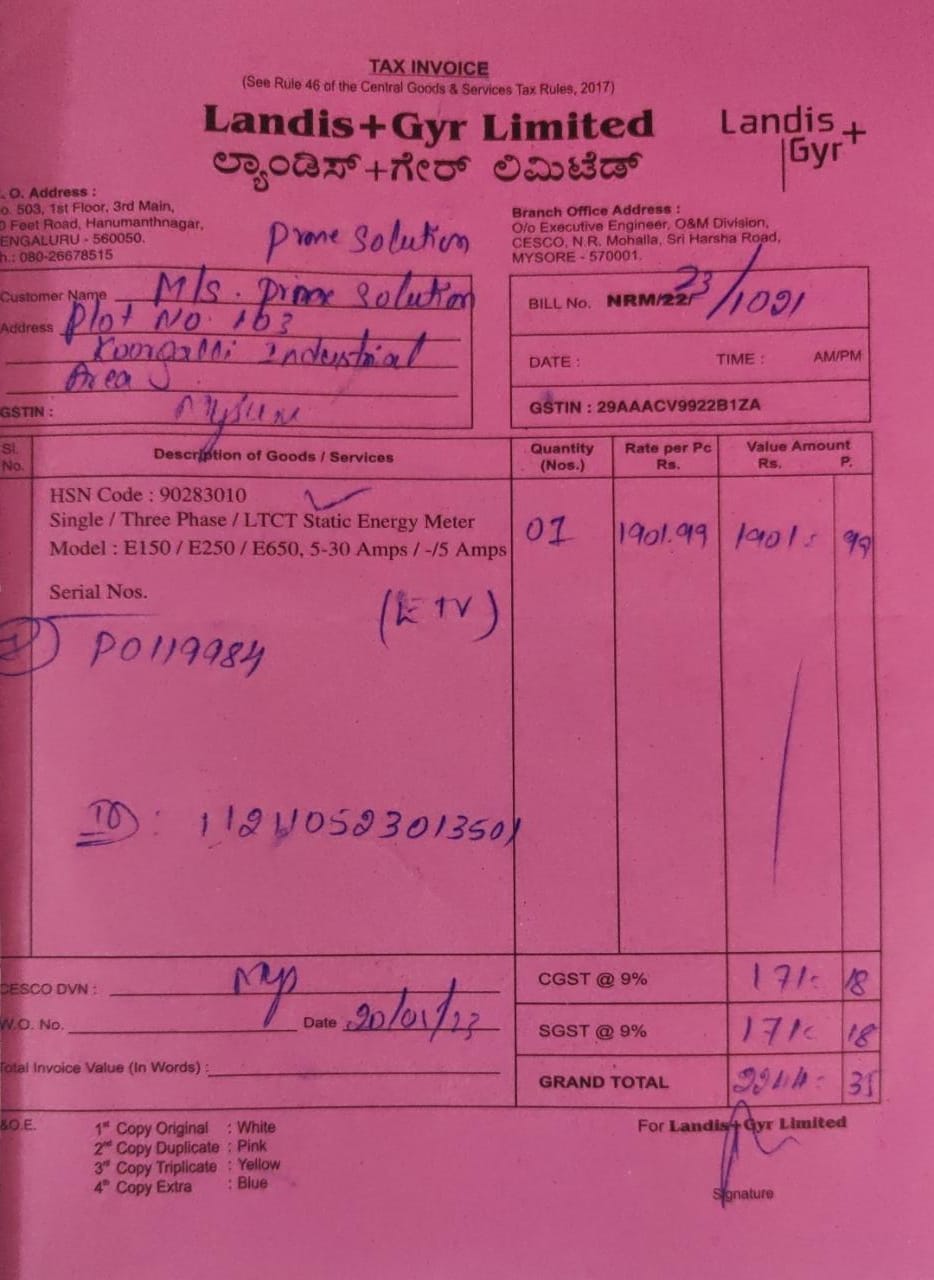 TAX INVOICE
(See Rule 46 of the Central Goods & Services Tax Rules, 2017)
Landis+Gyr Limited
ಲ್ಯಾಂಡಿಸ್+ಗೇರ್ ಲಿಮಿಟೆಡ್
Landis
Gyr+
. O. Address :
o. 503, 1st Floor, 3rd Main,
0 Feet Road, Hanumanthnagar,
ENGALURU - 560050.
h.: 080-26678515
Prome Solution
Branch Office Address :
O/o Executive Engineer, O&M Division,
CESCO, N.R. Mohalla, Sri Harsha Road,
MYSORE - 570001.
Customer Name M/s. Prime Solution
Address Plot No. 163
Koorgalli Industrial
Area
GSTIN : Mysure
BILL No. NRM/22/23/1091
DATE : TIME : AM/PM
GSTIN : 29AAACV9922B1ZA
Sl. No. Description of Goods / Services Quantity (Nos.) Rate per Pc Rs. Value Amount Rs. P.
HSN Code : 90283010
Single / Three Phase / LTCT Static Energy Meter 01 1901.99 1901 : 99
Model : E150 / E250 / E650, 5-30 Amps / -/5 Amps
Serial Nos.
1) P0119984
ID :
CESCO DVN : Myp
CGST @ 9% 171 : 18
W.O. No. Date 20/01/23
SGST @ 9% 171 : 18
Total Invoice Value (In Words) :
GRAND TOTAL 2244 - 35
&O.E.
1st Copy Original : White
2nd Copy Duplicate : Pink
3rd Copy Triplicate : Yellow
4th Copy Extra : Blue
For Landis+Gyr Limited
Signature